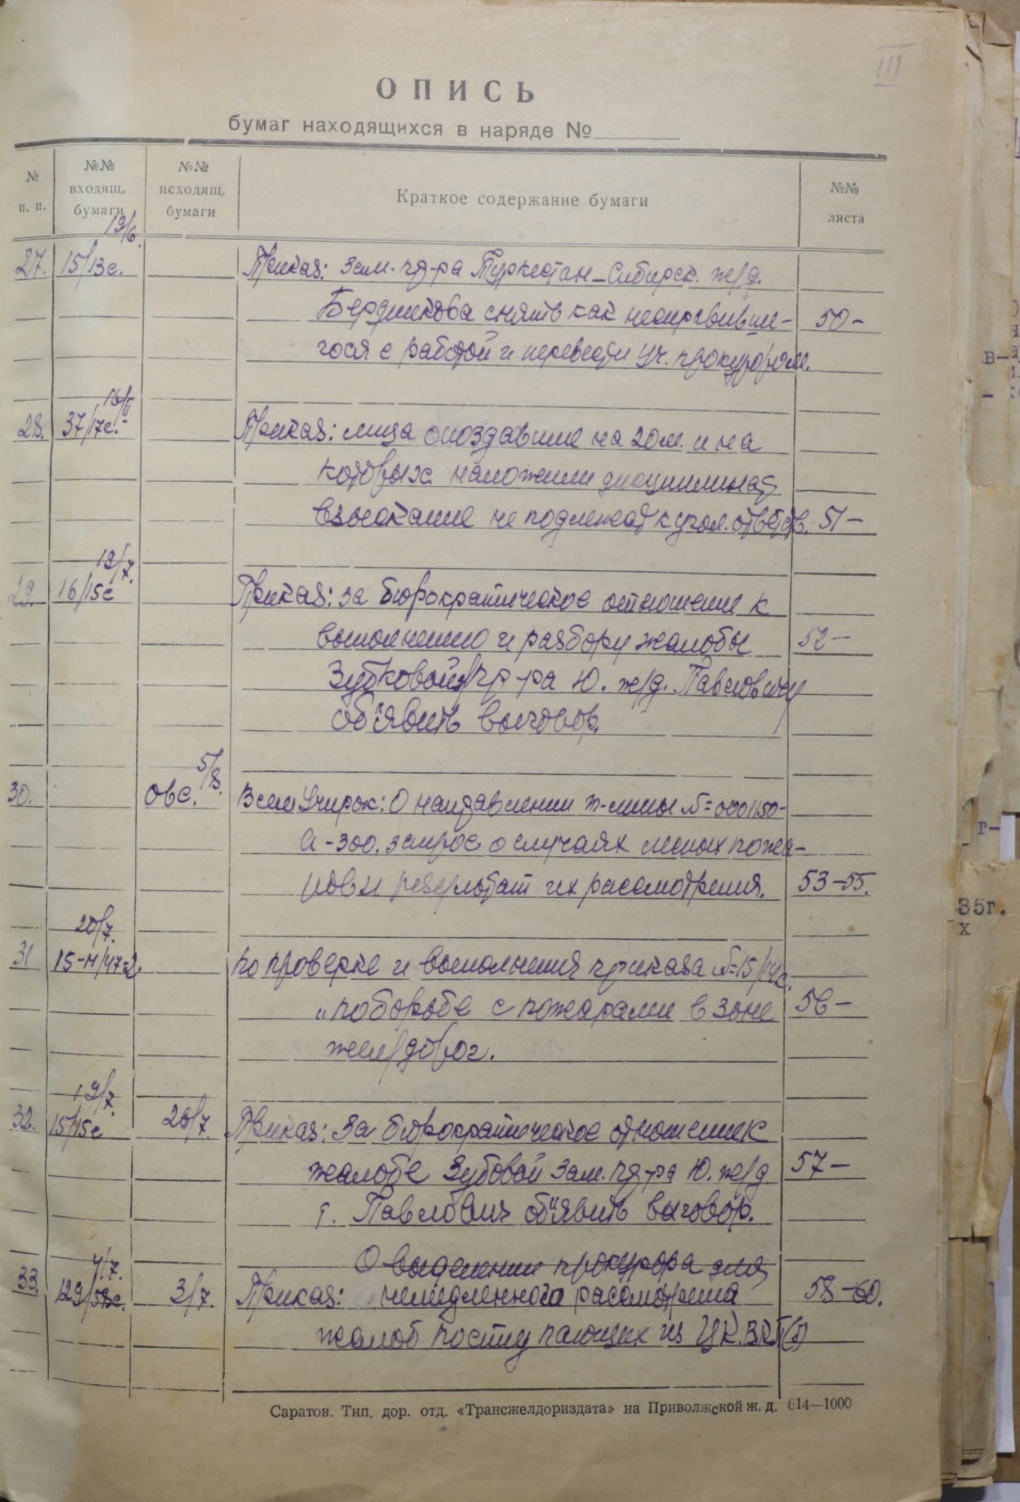 III
ОПИСЬ
бумаг находящихся в наряде №
№ п. п.
№№ входящ. бумаги
№№ исходящ. бумаги
Краткое содержание бумаги
№№ листа
19/6.
27. 15/13с. Приказ: зам. пр-ра Туркестан-Сибирск. ж/д.
Бердникова снять как несправивше- 50-
гося с работой и перевести уч. прокурором.
28. 37/17с.- Приказ: лица опоздавшие на 20м. и на
которых наложили дисциплинар
взыскание не подлежат к угол. ответств. 51-
19/7.
29. 16/15с Приказ: за бюрократическое отношение к
выполнению и разбору жалобы 52-
Зубковой пр-ра Ю. ж/д. Павловичу
об'явить выговор.
5/8.
30. овс. Всем Учпрок: О направлении т-ммы №=0001150-
а-300. запрос о случаях лесных пожа-
ров и результат их рассмотрения. 53-55.
20/7.
31 15-н/47-2 по проверке и выполнения приказа №=15/14с.
"по борьбе с пожарами в зоне 56-
жел/дорог.
19/7.
32. 15/15с 26/7. Приказ: За бюрократическое отношение к
жалобе Зубовой Зам. пр-ра Ю. ж/д 57-
т. Павлович об"явить выговор.
О выделении прокурора для
4/7.
33. 129/58с. 3/7. Приказ: немедленного рассмотрения 58-60.
жалоб поступающих из ЦК.ВКП(б)
Саратов. Тип. дор. отд. «Трансжелдориздата» на Приволжской ж. д. 614—1000
В-
г-
35г.
х